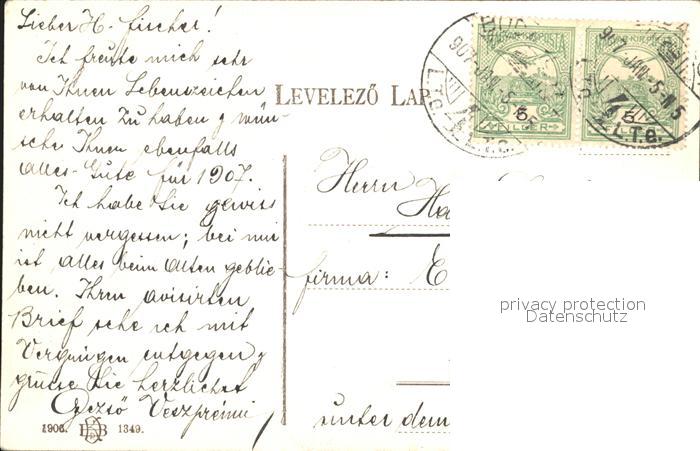 Lieber H. Fischer!
Ich freute mich sehr
von Ihnen Lebenszeichen
erhalten zu haben u wün-
sche Ihnen ebenfalls
alles Gute für 1907.
Ich habe Sie gewiss
nicht vergessen; bei mir
ist alles beim Alten geblie-
ben. Ihren avisirten
Brief sehe ich mit
Vergnügen entgegen u
grüsse Sie herzlichst
Veszprémi
1906. 1349.
LEVELEZŐ LAP
MAGYAR KIR. POSTA
907 JAN. -5
5
5
Herrn
firma: E
unter dem
privacy protection
Datenschutz